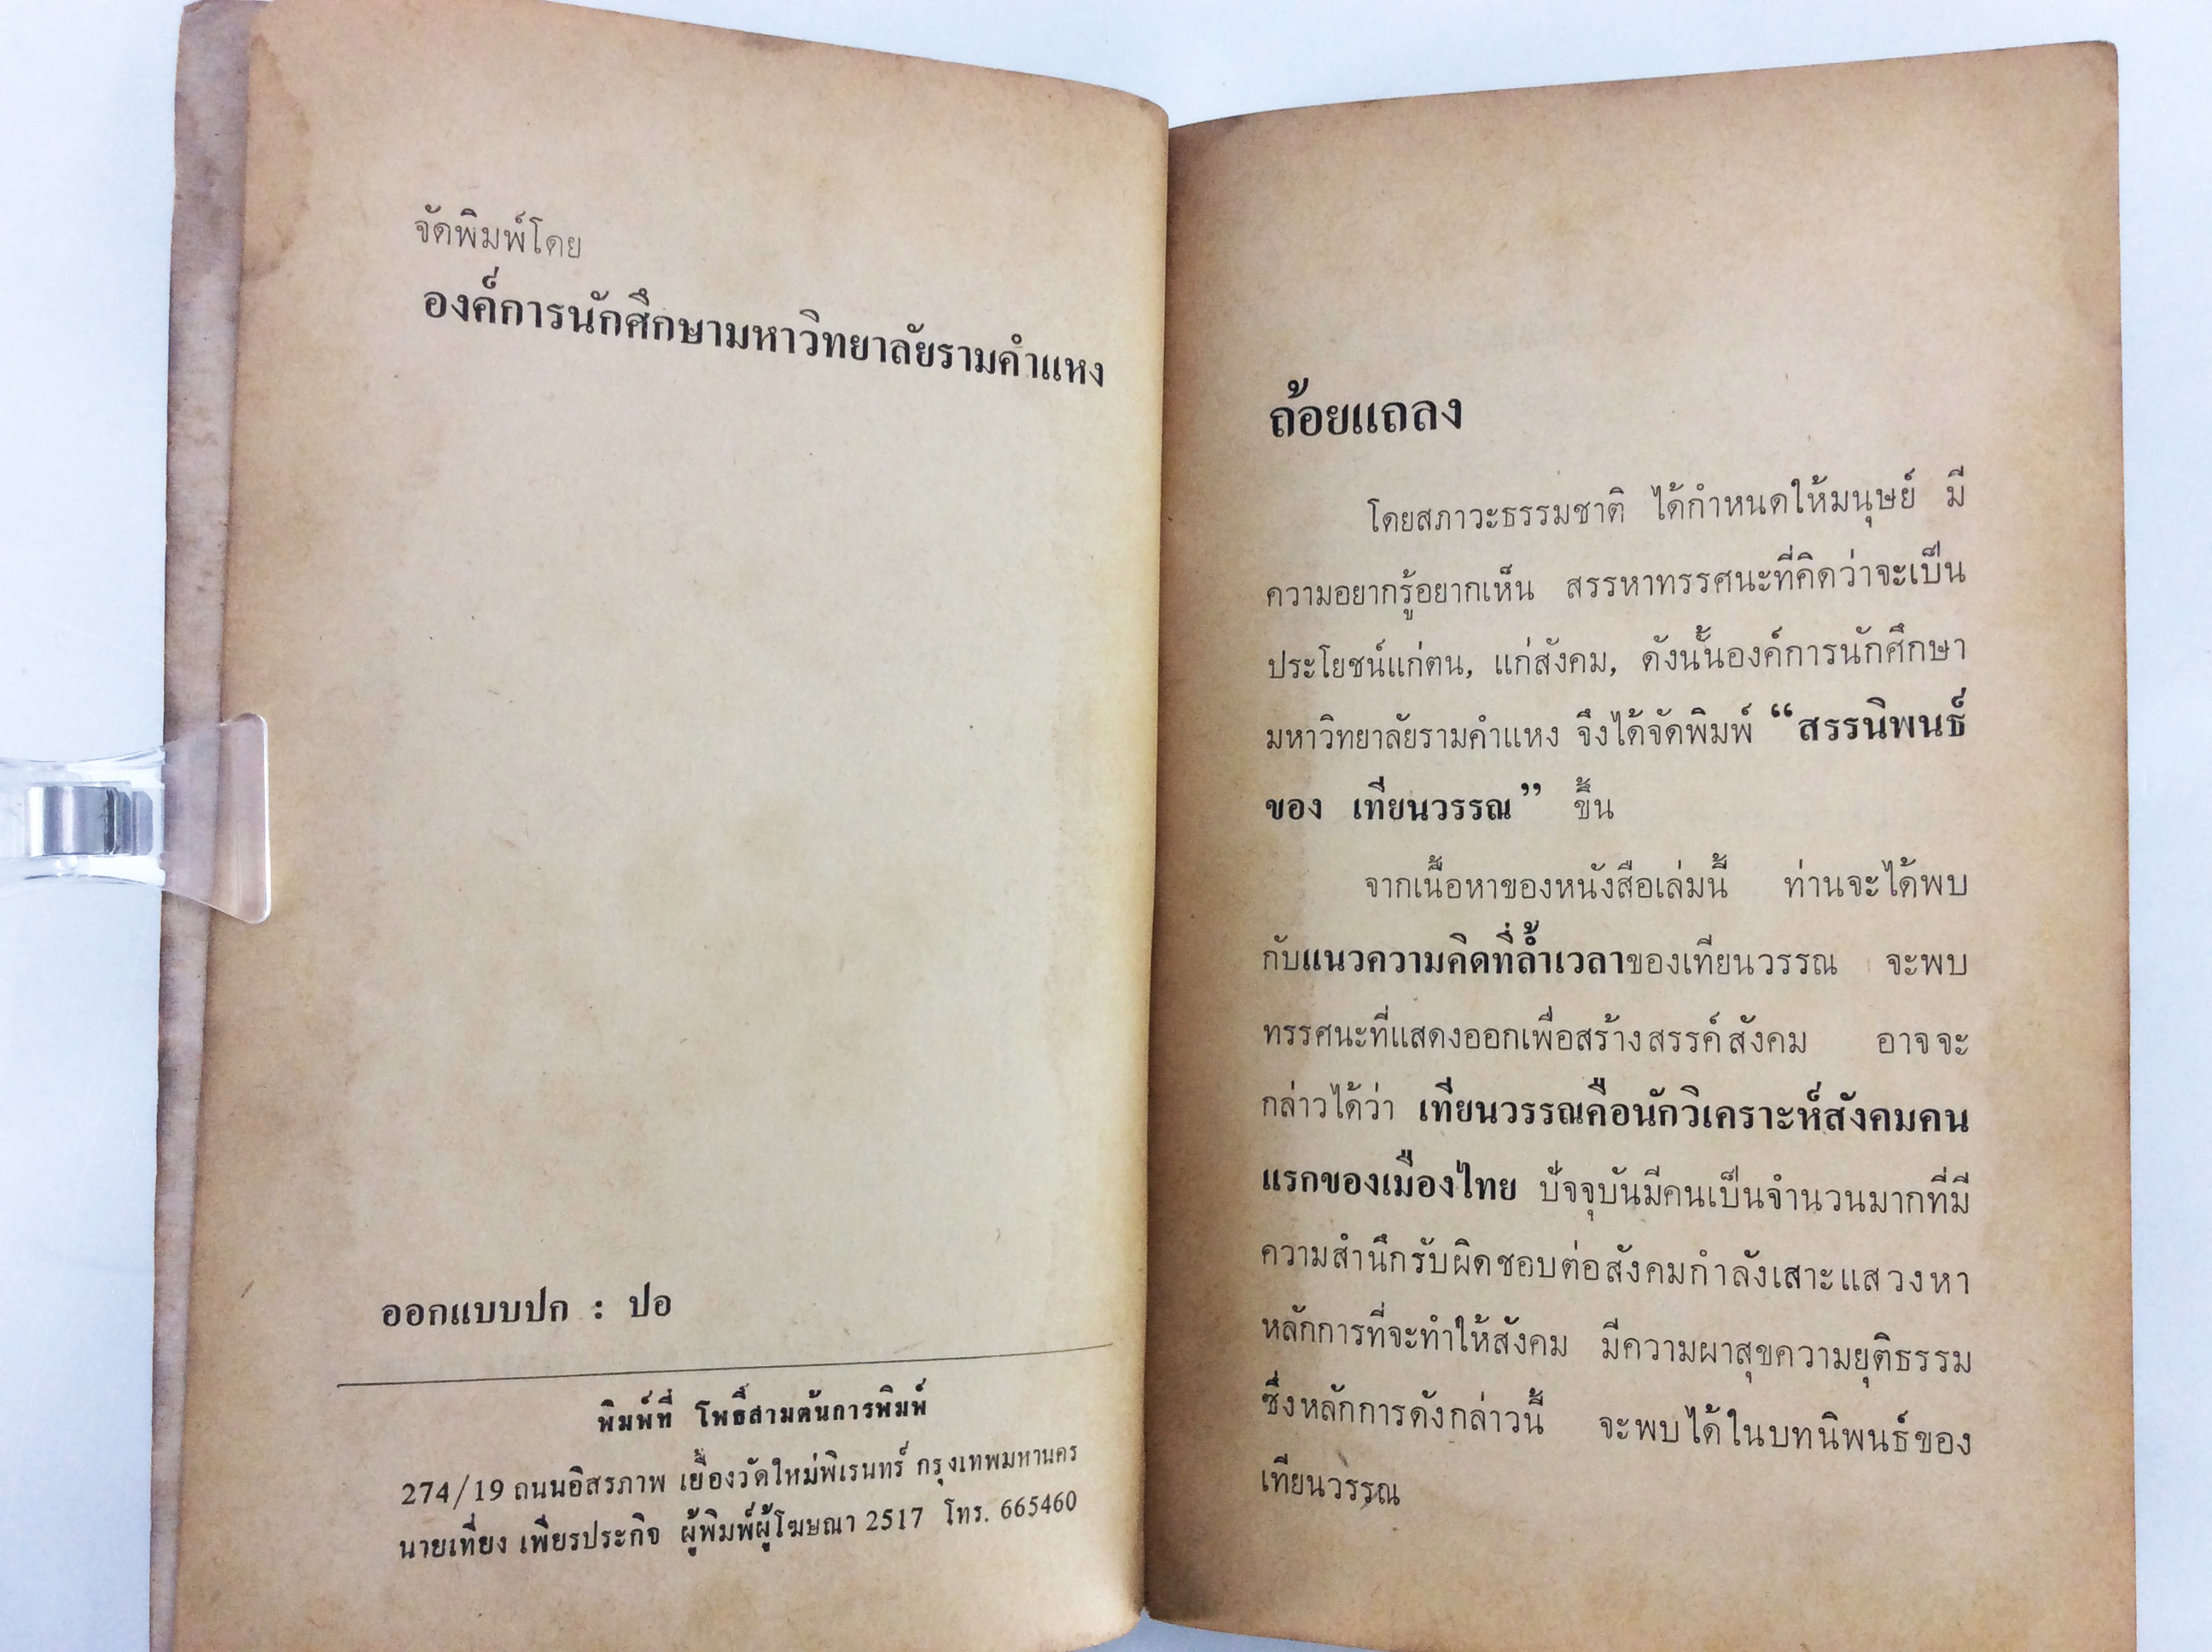 จัดพิมพ์โดย
องค์การนักศึกษามหาวิทยาลัยรามคำแหง
ออกแบบปก : ปอ
พิมพ์ที่ โพธิ์สามต้นการพิมพ์
274/19 ถนนอิสรภาพ เยื้องวัดใหม่พิเรนทร์ กรุงเทพมหานคร
นายเที่ยง เพียรประกิจ ผู้พิมพ์ผู้โฆษณา 2517 โทร. 665460
ถ้อยแถลง
โดยสภาวะธรรมชาติ ได้กำหนดให้มนุษย์ มี
ความอยากรู้อยากเห็น สรรหาทรรศนะที่คิดว่าจะเป็น
ประโยชน์แก่ตน, แก่สังคม, ดังนั้นองค์การนักศึกษา
มหาวิทยาลัยรามคำแหง จึงได้จัดพิมพ์ “สรรนิพนธ์
ของ เทียนวรรณ” ขึ้น
จากเนื้อหาของหนังสือเล่มนี้ ท่านจะได้พบ
กับแนวความคิดที่ล้ำเวลาของเทียนวรรณ จะพบ
ทรรศนะที่แสดงออกเพื่อสร้างสรรค์สังคม อาจจะ
กล่าวได้ว่า เทียนวรรณคือนักวิเคราะห์สังคมคน
แรกของเมืองไทย ปัจจุบันมีคนเป็นจำนวนมากที่มี
ความสำนึกรับผิดชอบต่อสังคมกำลังเสาะแสวงหา
หลักการที่จะทำให้สังคม มีความผาสุขความยุติธรรม
ซึ่งหลักการดังกล่าวนี้ จะพบได้ในบทนิพนธ์ของ
เทียนวรรณ